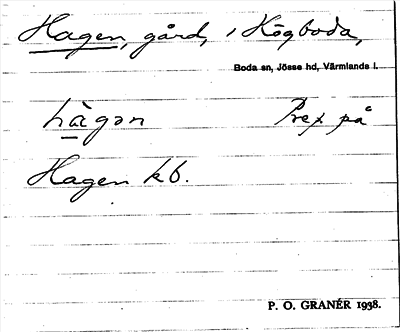 Hagen, gård, i Högboda,
Boda sn, Jösse hd, Värmlands l.
hàgǝn Prep på
Hagen kb.
P. O. GRANÉR 1938.